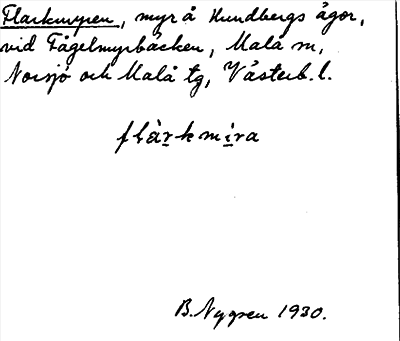 Flarkmyren, myr å Kundbergs ägor,
vid Fågelmyrbäcken, Malå sn,
Norsjö och Malå tg, Västerb. l.
flàrkmira
B. Nygren 1930.